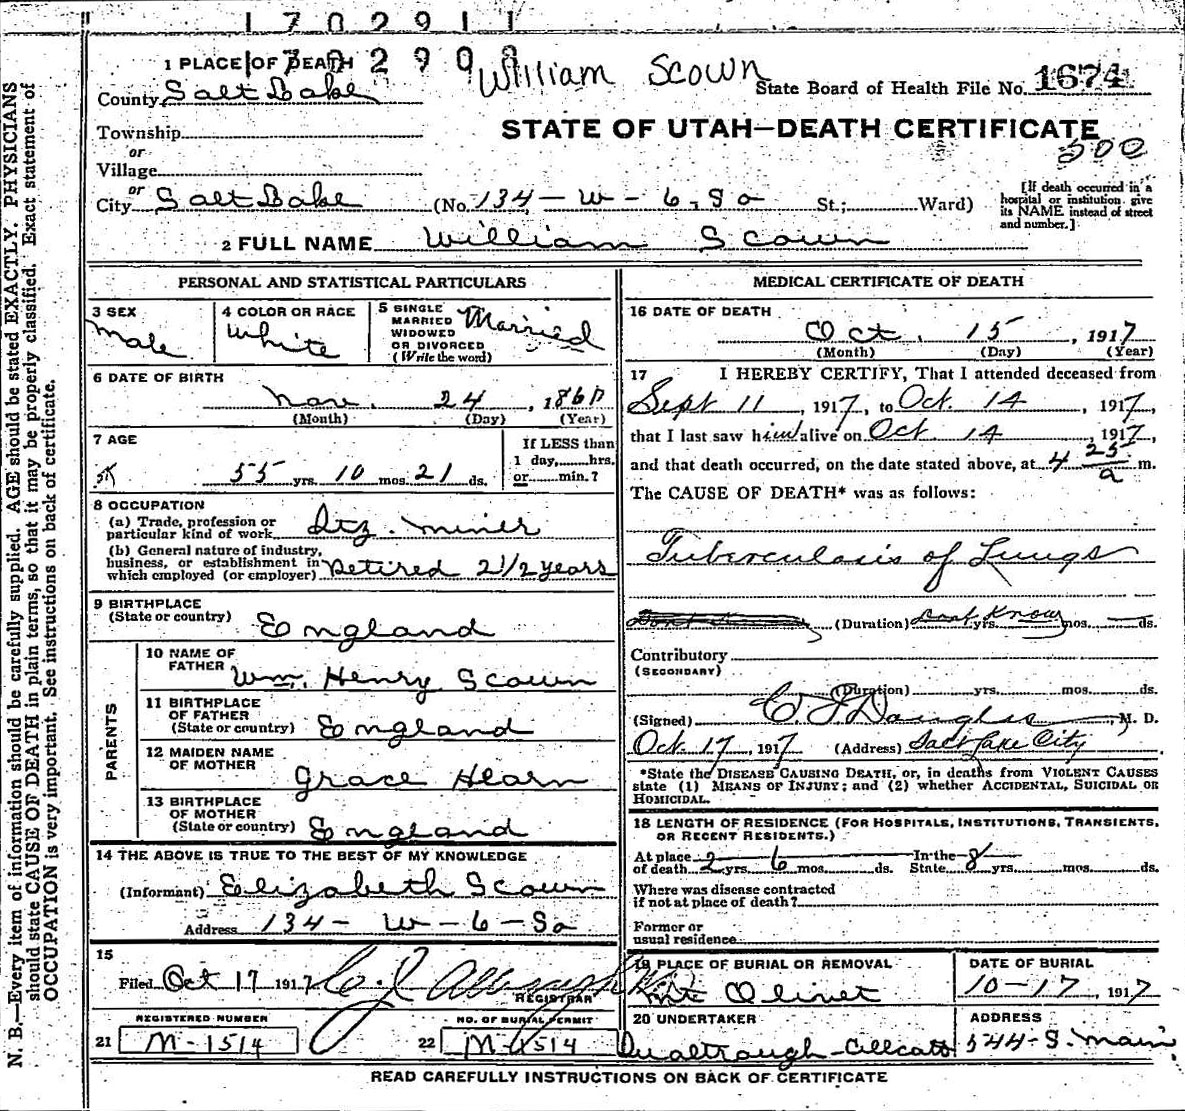 1702911
170299
William Scown
1 PLACE OF DEATH
County Salt Lake
State Board of Health File No. 1674
Township
or
Village
STATE OF UTAH—DEATH CERTIFICATE
500
or
City Salt Lake (No. 134 - W - 6. So St.; Ward)
[If death occurred in a hospital or institution give its NAME instead of street and number.]
2 FULL NAME William Scown
PERSONAL AND STATISTICAL PARTICULARS
3 SEX
Male
4 COLOR OR RACE
White
5 SINGLE
MARRIED
WIDOWED
OR DIVORCED
(Write the word)
Married
6 DATE OF BIRTH
24, 186
(Month) (Day) (Year)
7 AGE
55 yrs. 10 mos. 21 ds.
If LESS than
1 day,......hrs.
or......min.?
8 OCCUPATION
(a) Trade, profession or
particular kind of work Qtz. Miner
(b) General nature of industry,
business, or establishment in
which employed (or employer) Retired 2 1/2 years
9 BIRTHPLACE
(State or country) England
PARENTS
10 NAME OF
FATHER Wm. Henry Scown
11 BIRTHPLACE
OF FATHER
(State or country) England
12 MAIDEN NAME
OF MOTHER Grace Hearn
13 BIRTHPLACE
OF MOTHER
(State or country) England
14 THE ABOVE IS TRUE TO THE BEST OF MY KNOWLEDGE
(Informant) Elizabeth Scown
Address 134 - W - 6 - So
15
Filed Oct 17 1917
REGISTRAR
REGISTERED NUMBER
21 M-1514
NO. OF BURIAL PERMIT
22 M-1514
MEDICAL CERTIFICATE OF DEATH
16 DATE OF DEATH
Oct. 15, 1917
(Month) (Day) (Year)
17 I HEREBY CERTIFY, That I attended deceased from
Sept 11, 1917, to Oct. 14, 1917,
that I last saw him alive on Oct. 14, 1917,
and that death occurred, on the date stated above, at 4 25 a m.
The CAUSE OF DEATH* was as follows:
Tuberculosis of Lungs
(Duration) Dont Know yrs. mos. ds.
Contributory
(SECONDARY)
(Duration) yrs. mos. ds.
(Signed) C J Douglas, M. D.
Oct. 17, 1917 (Address) Salt Lake City
*State the DISEASE CAUSING DEATH, or, in deaths from VIOLENT CAUSES
state (1) MEANS OF INJURY; and (2) whether ACCIDENTAL, SUICIDAL OR
HOMICIDAL.
18 LENGTH OF RESIDENCE (FOR HOSPITALS, INSTITUTIONS, TRANSIENTS,
OR RECENT RESIDENTS.)
At place
of death 2 yrs. 6 mos. ds. In the
State 8 yrs. mos. ds.
Where was disease contracted
if not at place of death?
Former or
usual residence
19 PLACE OF BURIAL OR REMOVAL
Mt Olivet
DATE OF BURIAL
10-17, 1917
20 UNDERTAKER
ADDRESS
544-S. Main
READ CAREFULLY INSTRUCTIONS ON BACK OF CERTIFICATE
N. B.—Every item of information should be carefully supplied. AGE should be stated EXACTLY. PHYSICIANS
should state CAUSE OF DEATH in plain terms, so that it may be properly classified. Exact statement of
OCCUPATION is very important. See instructions on back of certificate.